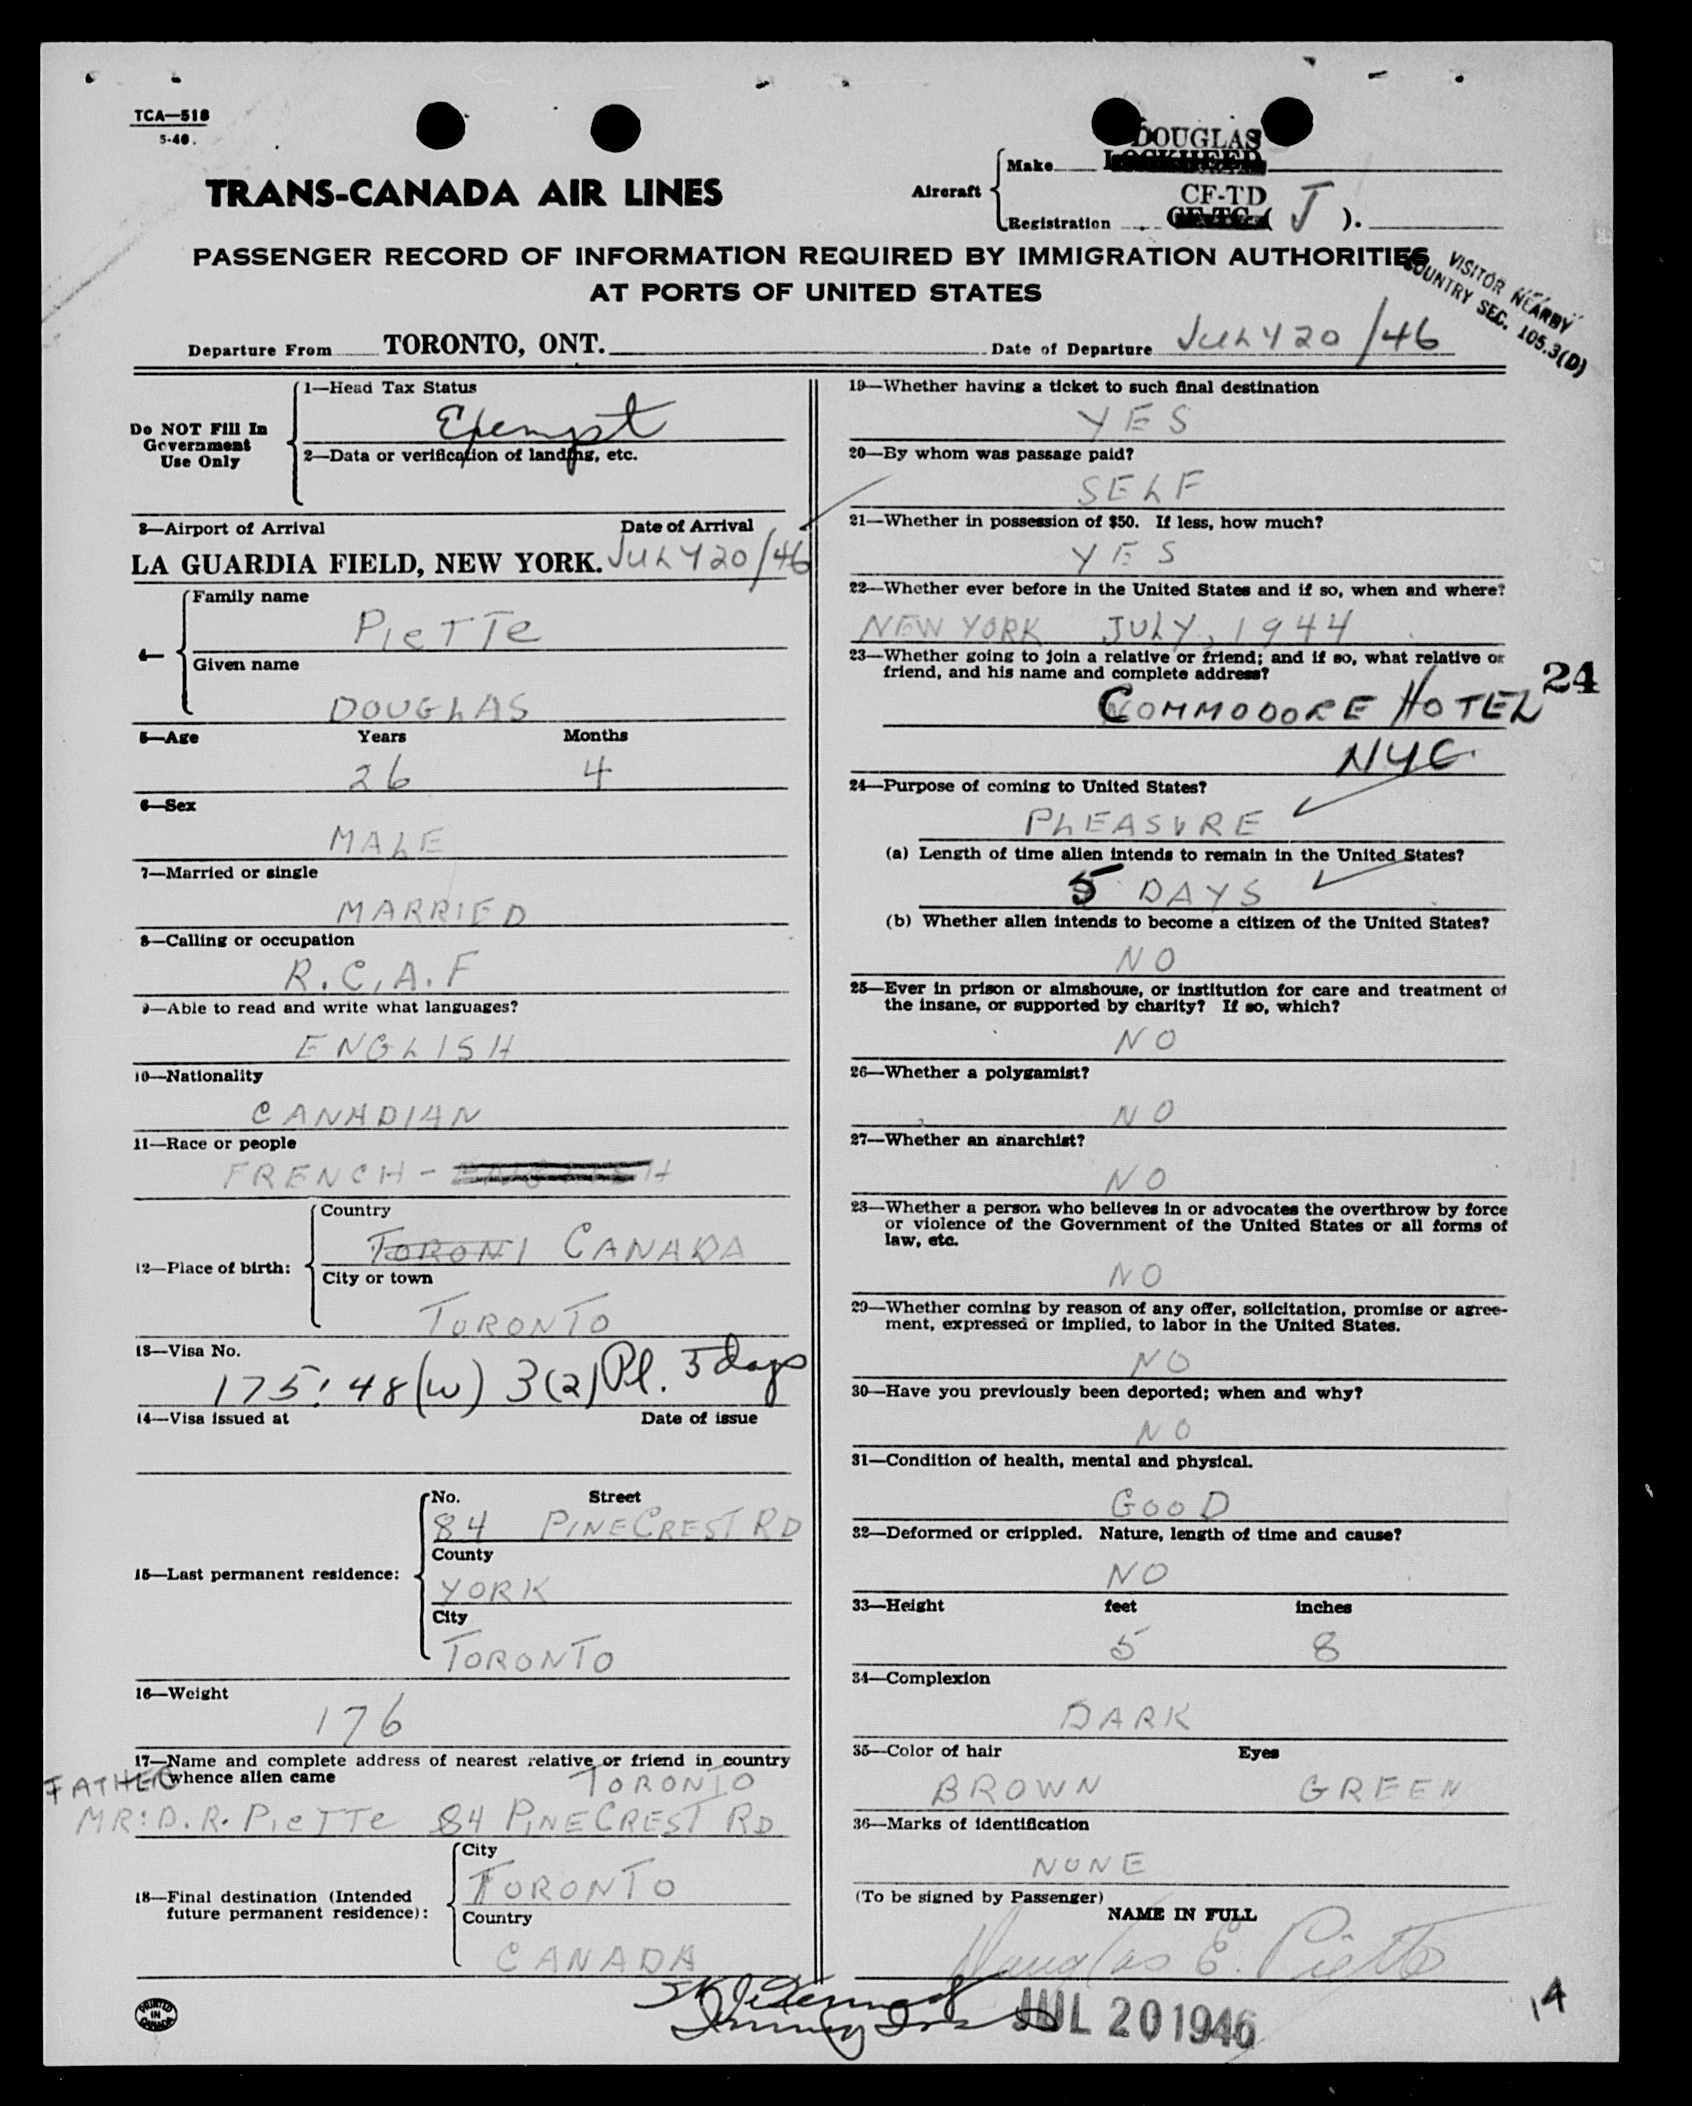 TCA—518
5-40.
TRANS-CANADA AIR LINES
Aircraft
Make
DOUGLAS
LOCKHEED
Registration
CF-TD
CF-TC-( J ).
PASSENGER RECORD OF INFORMATION REQUIRED BY IMMIGRATION AUTHORITIES
AT PORTS OF UNITED STATES
VISITOR NEARBY
COUNTRY SEC. 105.3(D)
Departure From TORONTO, ONT.
Date of Departure JULY 20/46
Do NOT Fill In
Government
Use Only
1—Head Tax Status
Exempt
2—Data or verification of landing, etc.
3—Airport of Arrival Date of Arrival
LA GUARDIA FIELD, NEW YORK. JULY 20/46
4—
Family name
PieTTe
Given name
DOUGLAS
5—Age Years Months
26 4
6—Sex
MALE
7—Married or single
MARRIED
8—Calling or occupation
R.C.A.F
9—Able to read and write what languages?
ENGLISH
10—Nationality
CANADIAN
11—Race or people
FRENCH - ENGLISH
12—Place of birth:
Country
TORONT CANADA
City or town
TORONTO
13—Visa No.
175:48(w) 3(2) Pl. 5 days
14—Visa issued at Date of issue
15—Last permanent residence:
No. Street
84 PINECREST RD
County
YORK
City
TORONTO
16—Weight
176
17—Name and complete address of nearest relative or friend in country
whence alien came
FATHER
TORONTO
MR: D. R. PieTTe 84 PINECREST RD
18—Final destination (Intended
future permanent residence):
City
TORONTO
Country
CANADA
PRINTED
IN
CANADA
19—Whether having a ticket to such final destination
YES
20—By whom was passage paid?
SELF
21—Whether in possession of $50. If less, how much?
YES
22—Whether ever before in the United States and if so, when and where?
NEW YORK JULY, 1944
23—Whether going to join a relative or friend; and if so, what relative or
friend, and his name and complete address?
24
COMMODORE HOTEL
NYC
24—Purpose of coming to United States?
PLEASURE
(a) Length of time alien intends to remain in the United States?
5 DAYS
(b) Whether alien intends to become a citizen of the United States?
NO
25—Ever in prison or almshouse, or institution for care and treatment of
the insane, or supported by charity? If so, which?
NO
26—Whether a polygamist?
NO
27—Whether an anarchist?
NO
28—Whether a person who believes in or advocates the overthrow by force
or violence of the Government of the United States or all forms of
law, etc.
NO
29—Whether coming by reason of any offer, solicitation, promise or agree-
ment, expressed or implied, to labor in the United States.
NO
30—Have you previously been deported; when and why?
NO
31—Condition of health, mental and physical.
GOOD
32—Deformed or crippled. Nature, length of time and cause?
NO
33—Height feet inches
5 8
34—Complexion
DARK
35—Color of hair Eyes
BROWN GREEN
36—Marks of identification
NONE
(To be signed by Passenger)
NAME IN FULL
Douglas E. Piette
JUL 20 1946